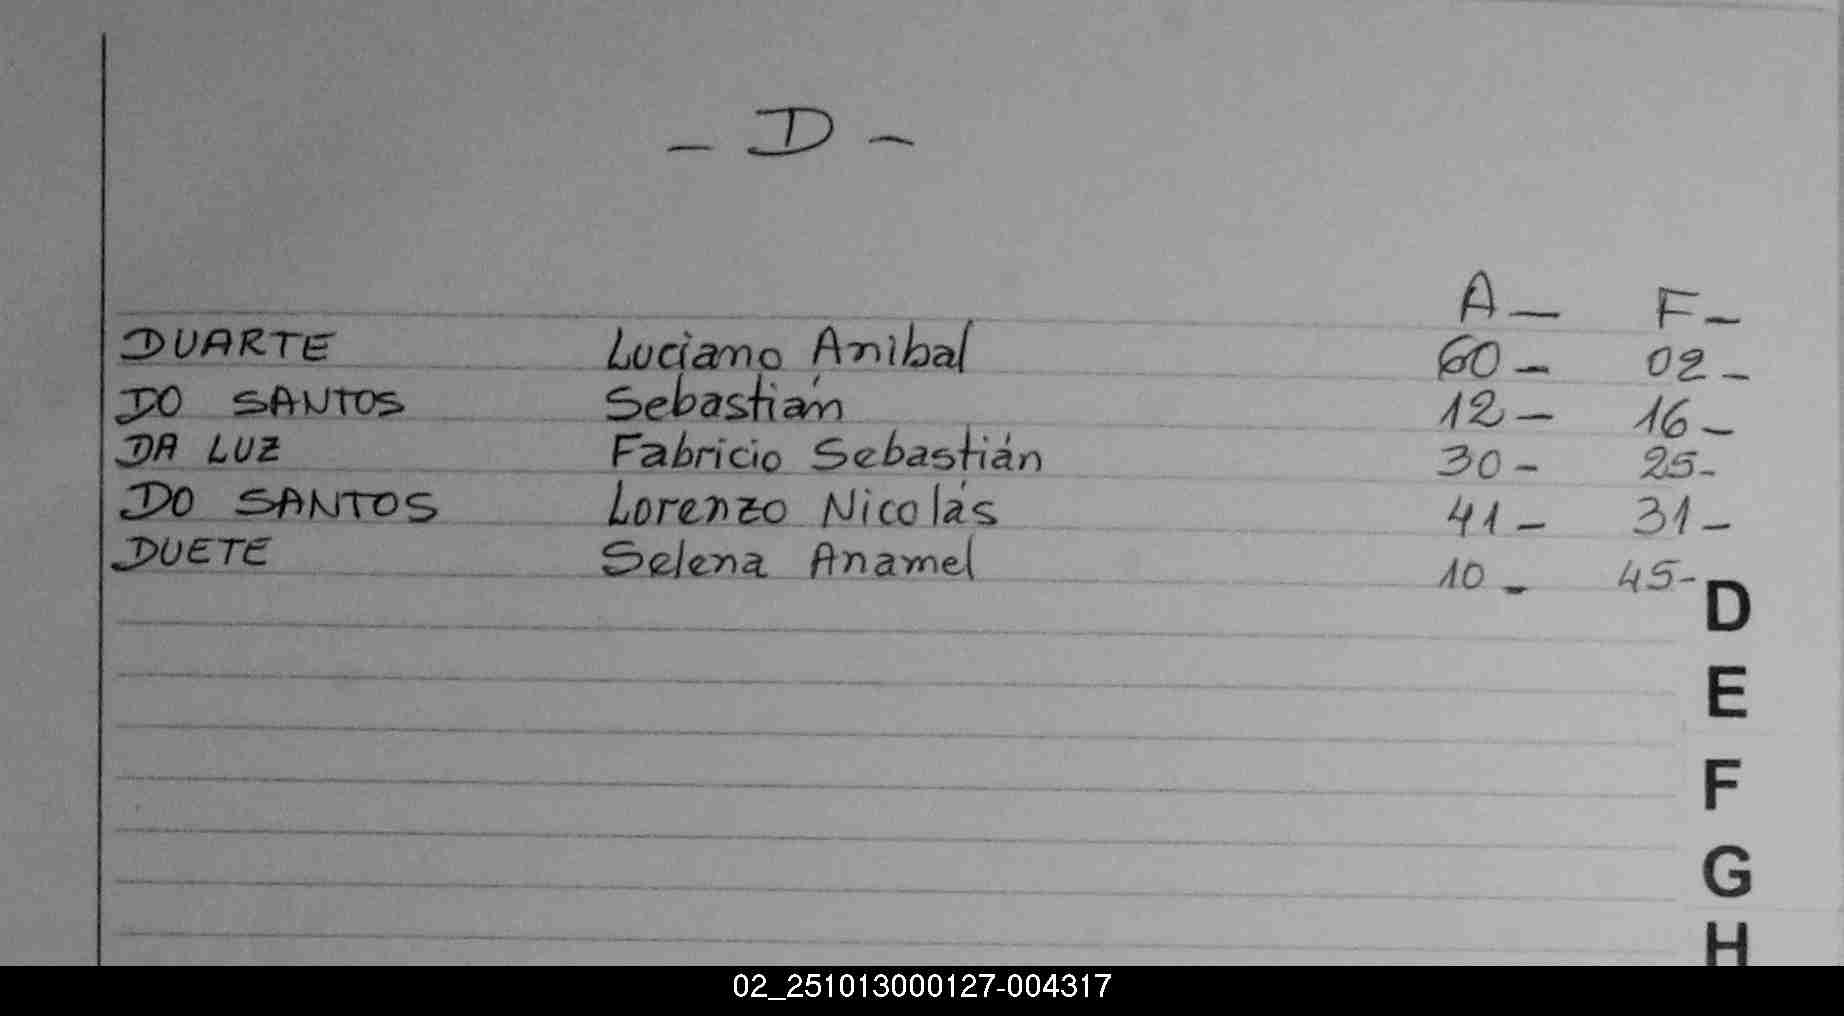 - D -
A - F -
DUARTE Luciano Anibal 60 - 02 -
DO SANTOS Sebastián 12 - 16 -
DA LUZ Fabricio Sebastián 30 - 25 -
DO SANTOS Lorenzo Nicolás 41 - 31 -
DUETE Selena Anamel 10 - 45 -
D
E
F
G
H
02_251013000127-004317